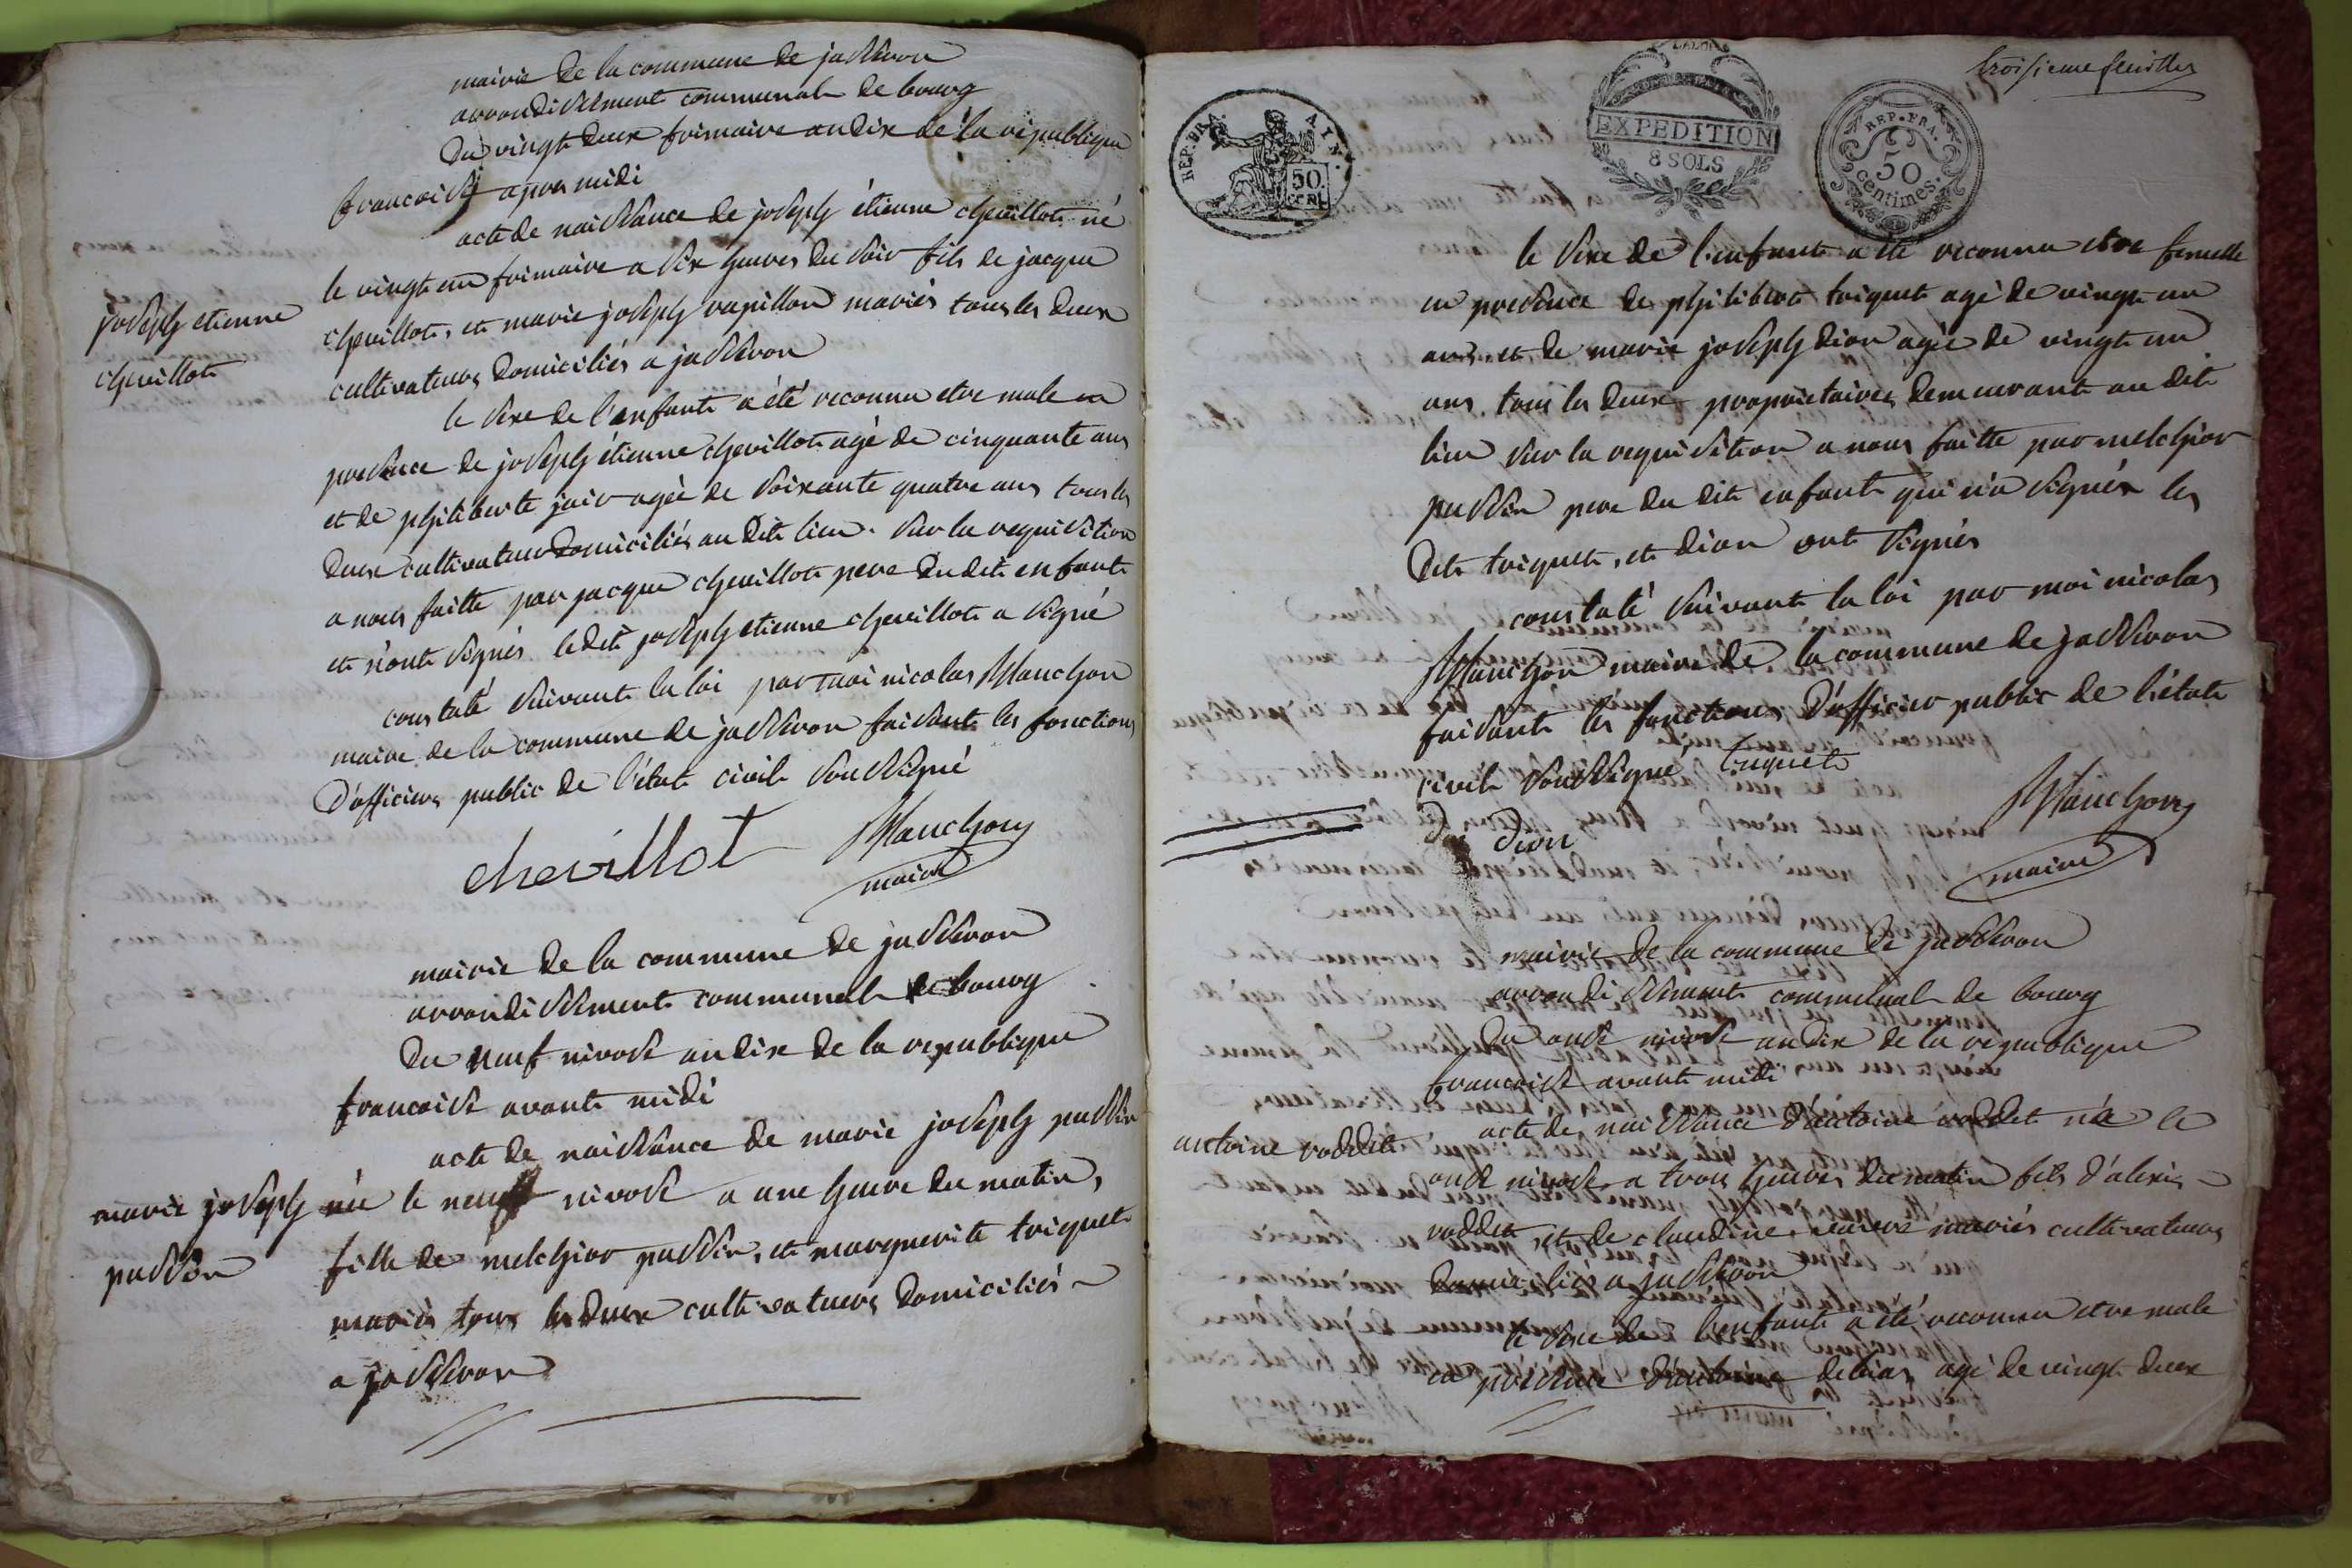 mairie de la commune de jasseron
arrondissement communal de bourg
du vingt deux frimaire an dix de la republique
francoise apres midi
acte de naissance de joseph étienne chevillot né
le vingt un frimaire a six heures du soir fils de jacque
chevillot, et marie joseph rapillon mariés tous les deux
cultivateurs domiciliés a jasseron
joseph etienne
chevillot
le sexe de l'enfant a été reconnu etre male en
presence de joseph étienne chevillot agé de cinquante ans
et de philiberte jair agée de soixante quatre ans tous les
deux cultivateur domiciliés au dit lieu. sur la requisition
a nous faitte par jacque chevillot pere du dit enfant
et n'ont signés le dit joseph etienne chevillot a signé
constaté suivant la loi par moi nicolas Manchon
maire de la commune de jasseron faisant les fonctions
d'officiers public de l'état civil soussigné
chevillot Manchon
maire
mairie de la commune de jasseron
arrondissement communal de bourg
du neuf nivose an dix de la republique
francoise avant midi
acte de naissance de marie joseph pussin
née le neuf nivose a une heure du matin,
fille de melchior pussin, et marguerite triquet
mariés tous les deux cultivateurs domiciliés
a jasseron
marie joseph
pussin
troisieme feuillet
REP. FRA.
50
CENT.
EXPEDITION
8 SOLS
REP. FRA.
50
centimes.
le sexe de l'enfant a été reconnu etre femelle
en presence de philibert triquet agé de vingt un
ans, et de marie joseph dion agée de vingt un
ans, tous les deux proprietaires demeurant au dit
lieu sur la requisition a nous faitte par melchior
pussin pere du dit enfant qui n'a signés les
dits triquet, et dion ont signés
constaté suivant la loi par moi nicolas
Manchon maire de la commune de jasseron
faisant les fonctions d'officier public de l'état
civil soussigné triquet
dion
Manchon
maire
mairie de la commune de jasseron
arrondissement communal de bourg
du onze nivose an dix de la republique
francoise avant midi
acte de naissance d'antoine voddet né le
onze nivose a trois heures du matin fils d'alexis
voddet et de claudine mariés cultivateurs
domiciliés a jasseron
antoine voddet
le sexe de l'enfant a été reconnu etre male
en presence d'antoine debias agé de vingt deux